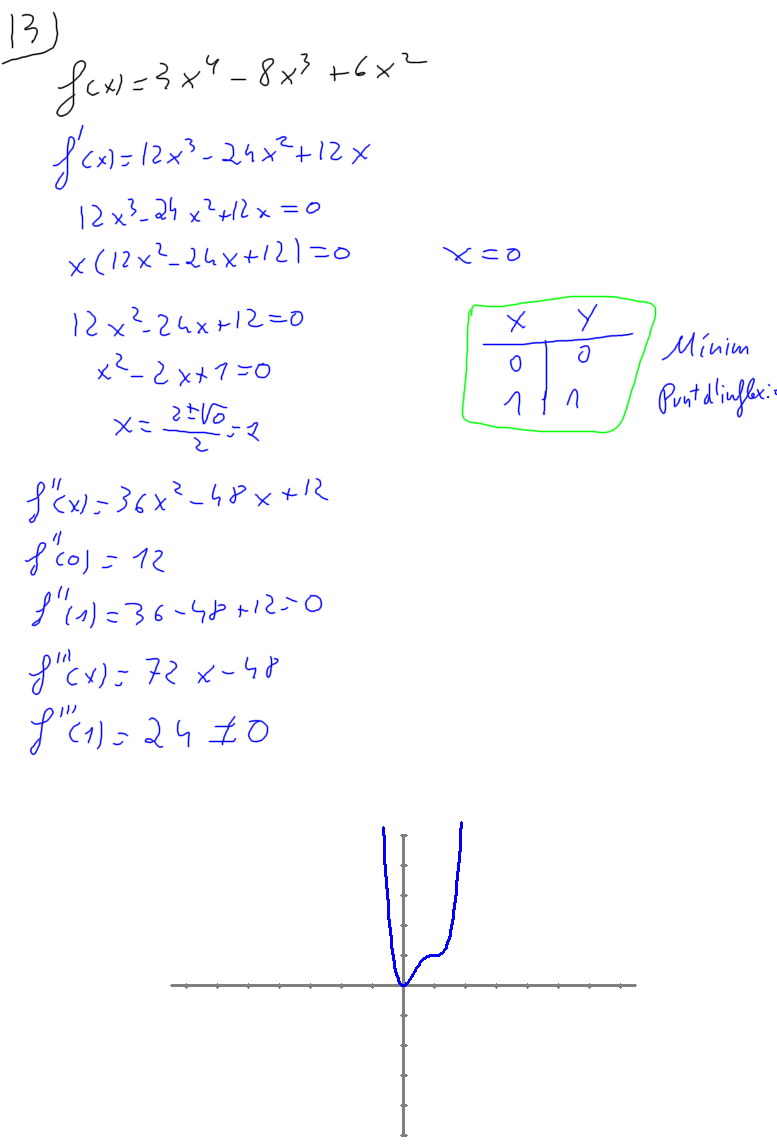 13)
f(x)=3x⁴-8x³+6x²
f'(x)=12x³-24x²+12x
12x³-24x²+12x=0
x(12x²-24x+12)=0 x=0
12x²-24x+12=0
x²-2x+1=0
x=(2±√0)/2=1
X Y
0 0 Mínim
1 1 Punt d'inflexi
f''(x)=36x²-48x+12
f''(0)=12
f''(1)=36-48+12=0
f'''(x)=72x-48
f'''(1)=24≠0